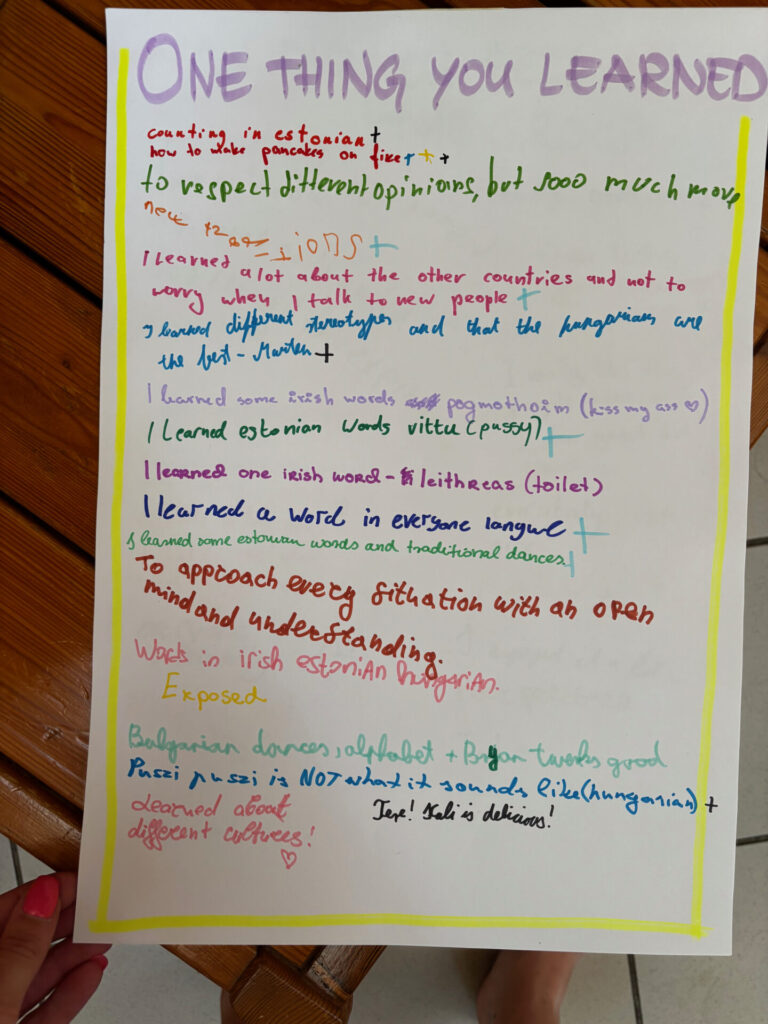 ONE THING YOU LEARNED
counting in estonian +
how to make pancakes on fire + + +
to respect different opinions, but sooo much more
new
I learned alot about the other countries and not to
worry when I talk to new people +
I learned different stereotypes and that the hungarians are
the best - +
I learned some irish words pogmothoim (kiss my ass ♡)
I learned estonian words vittu (pussy) +
I learned one irish word - leithreas (toilet)
I learned a word in everyone langue +
I learned some estonian words and traditional dances. +
To approach every situation with an open
mind and understanding.
Words in irish estoniAn hungariAn.
Exposed
Bulgarian dances, alphabet + Bryan twerks good
Puszi puszi is NOT what it sounds like (hungarian) +
Learned about
different cultures!
♡
Tere! Kali is delicious!